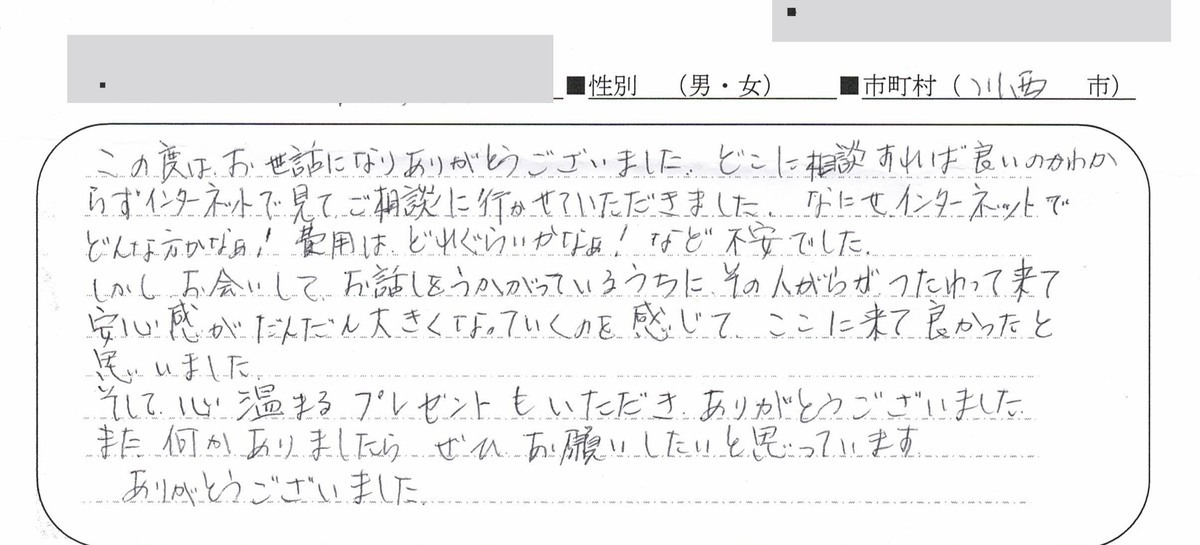 ■性別 （男・女） ■市町村（川西 市）
この度は、お世話になりありがとうございました。どこに相談すれば良いのかわか
らずインターネットで見てご相談に行かせていただきました。なにせ、インターネットで
どんな方かなぁ！費用は、どれぐらいかなぁ！など不安でした。
しかし お会いして、お話しをうかがっているうちに、その人がらが つたわって来て
安心感がだんだん大きくなっていくのを感じて、ここに来て良かったと
思いました。
そして、心温まるプレゼントもいただき、ありがとうございました。
また何かありましたら ぜひ、お願いしたいと思っています。
ありがとうございました。